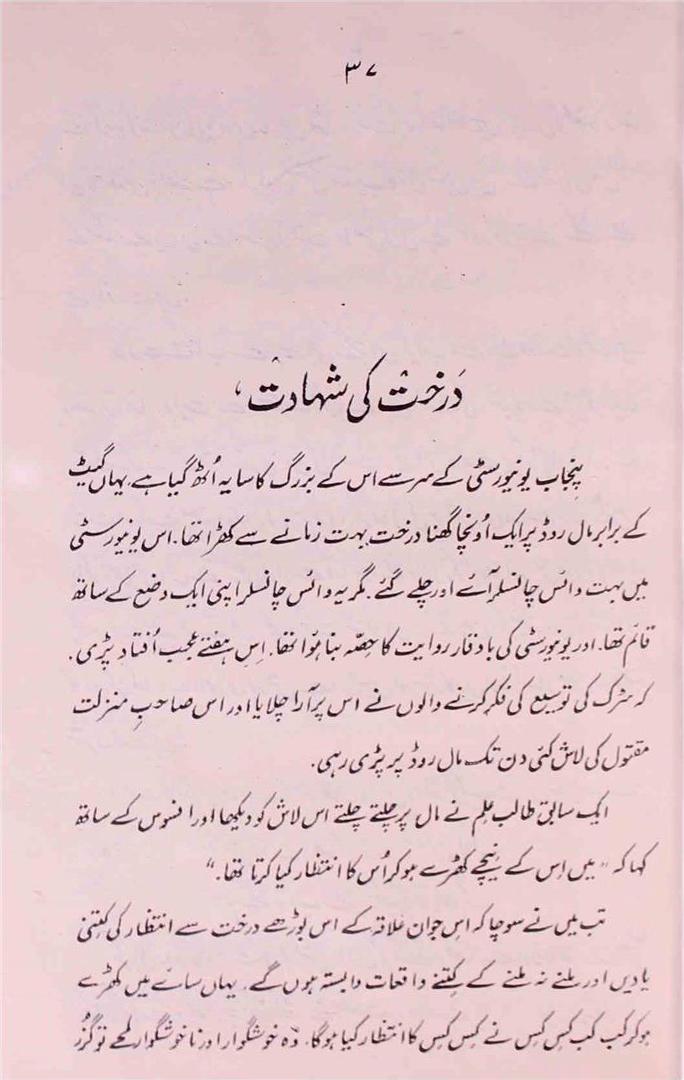 ۳۷
درخت کی شہادت،
پنجاب یونیورسٹی کے سر سے اس کے بزرگ کا سایہ اُٹھ گیا ہے۔ یہاں گیٹ
کے برابر مال روڈ پر ایک اونچا گھنا درخت بہت زمانے سے کھڑا تھا۔ اس یونیورسٹی
میں بہت وائس چانسلر آئے اور چلے گئے۔ مگر یہ وائس چانسلر اپنی ایک وضع کے ساتھ
قائم تھا۔ اور یونیورسٹی کی باوقار روایت کا حصّہ بنا ہوا تھا۔ اِس ہفتے عجب اُفتاد پڑی۔
کہ سڑک کی توسیع کی فکر کرنے والوں نے اس پر آرا چلایا اور اس صاحبِ منزلت
مقتول کی لاش کئی دن تک مال روڈ پر پڑی رہی۔
ایک سابق طالب علِم نے مال پر چلتے چلتے اس لاش کو دیکھا اور افسوس کے ساتھ
کہا کہ "میں اِس کے نیچے کھڑے ہو کر اُس کا انتظار کیا کرتا تھا۔"
تب میں نے سوچا کہ اس جوان علاقہ کے اس بوڑھے درخت سے انتظار کی کتنی
یادیں اور ملنے نہ ملنے کے کتنے واقعات وابستہ ہوں گے۔ یہاں سائے میں کھڑے
ہو کر کب کب کس کس نے کس کس کا انتظار کیا ہوگا۔ وہ خوشگوار اور ناخوشگوار لمحے تو گزر